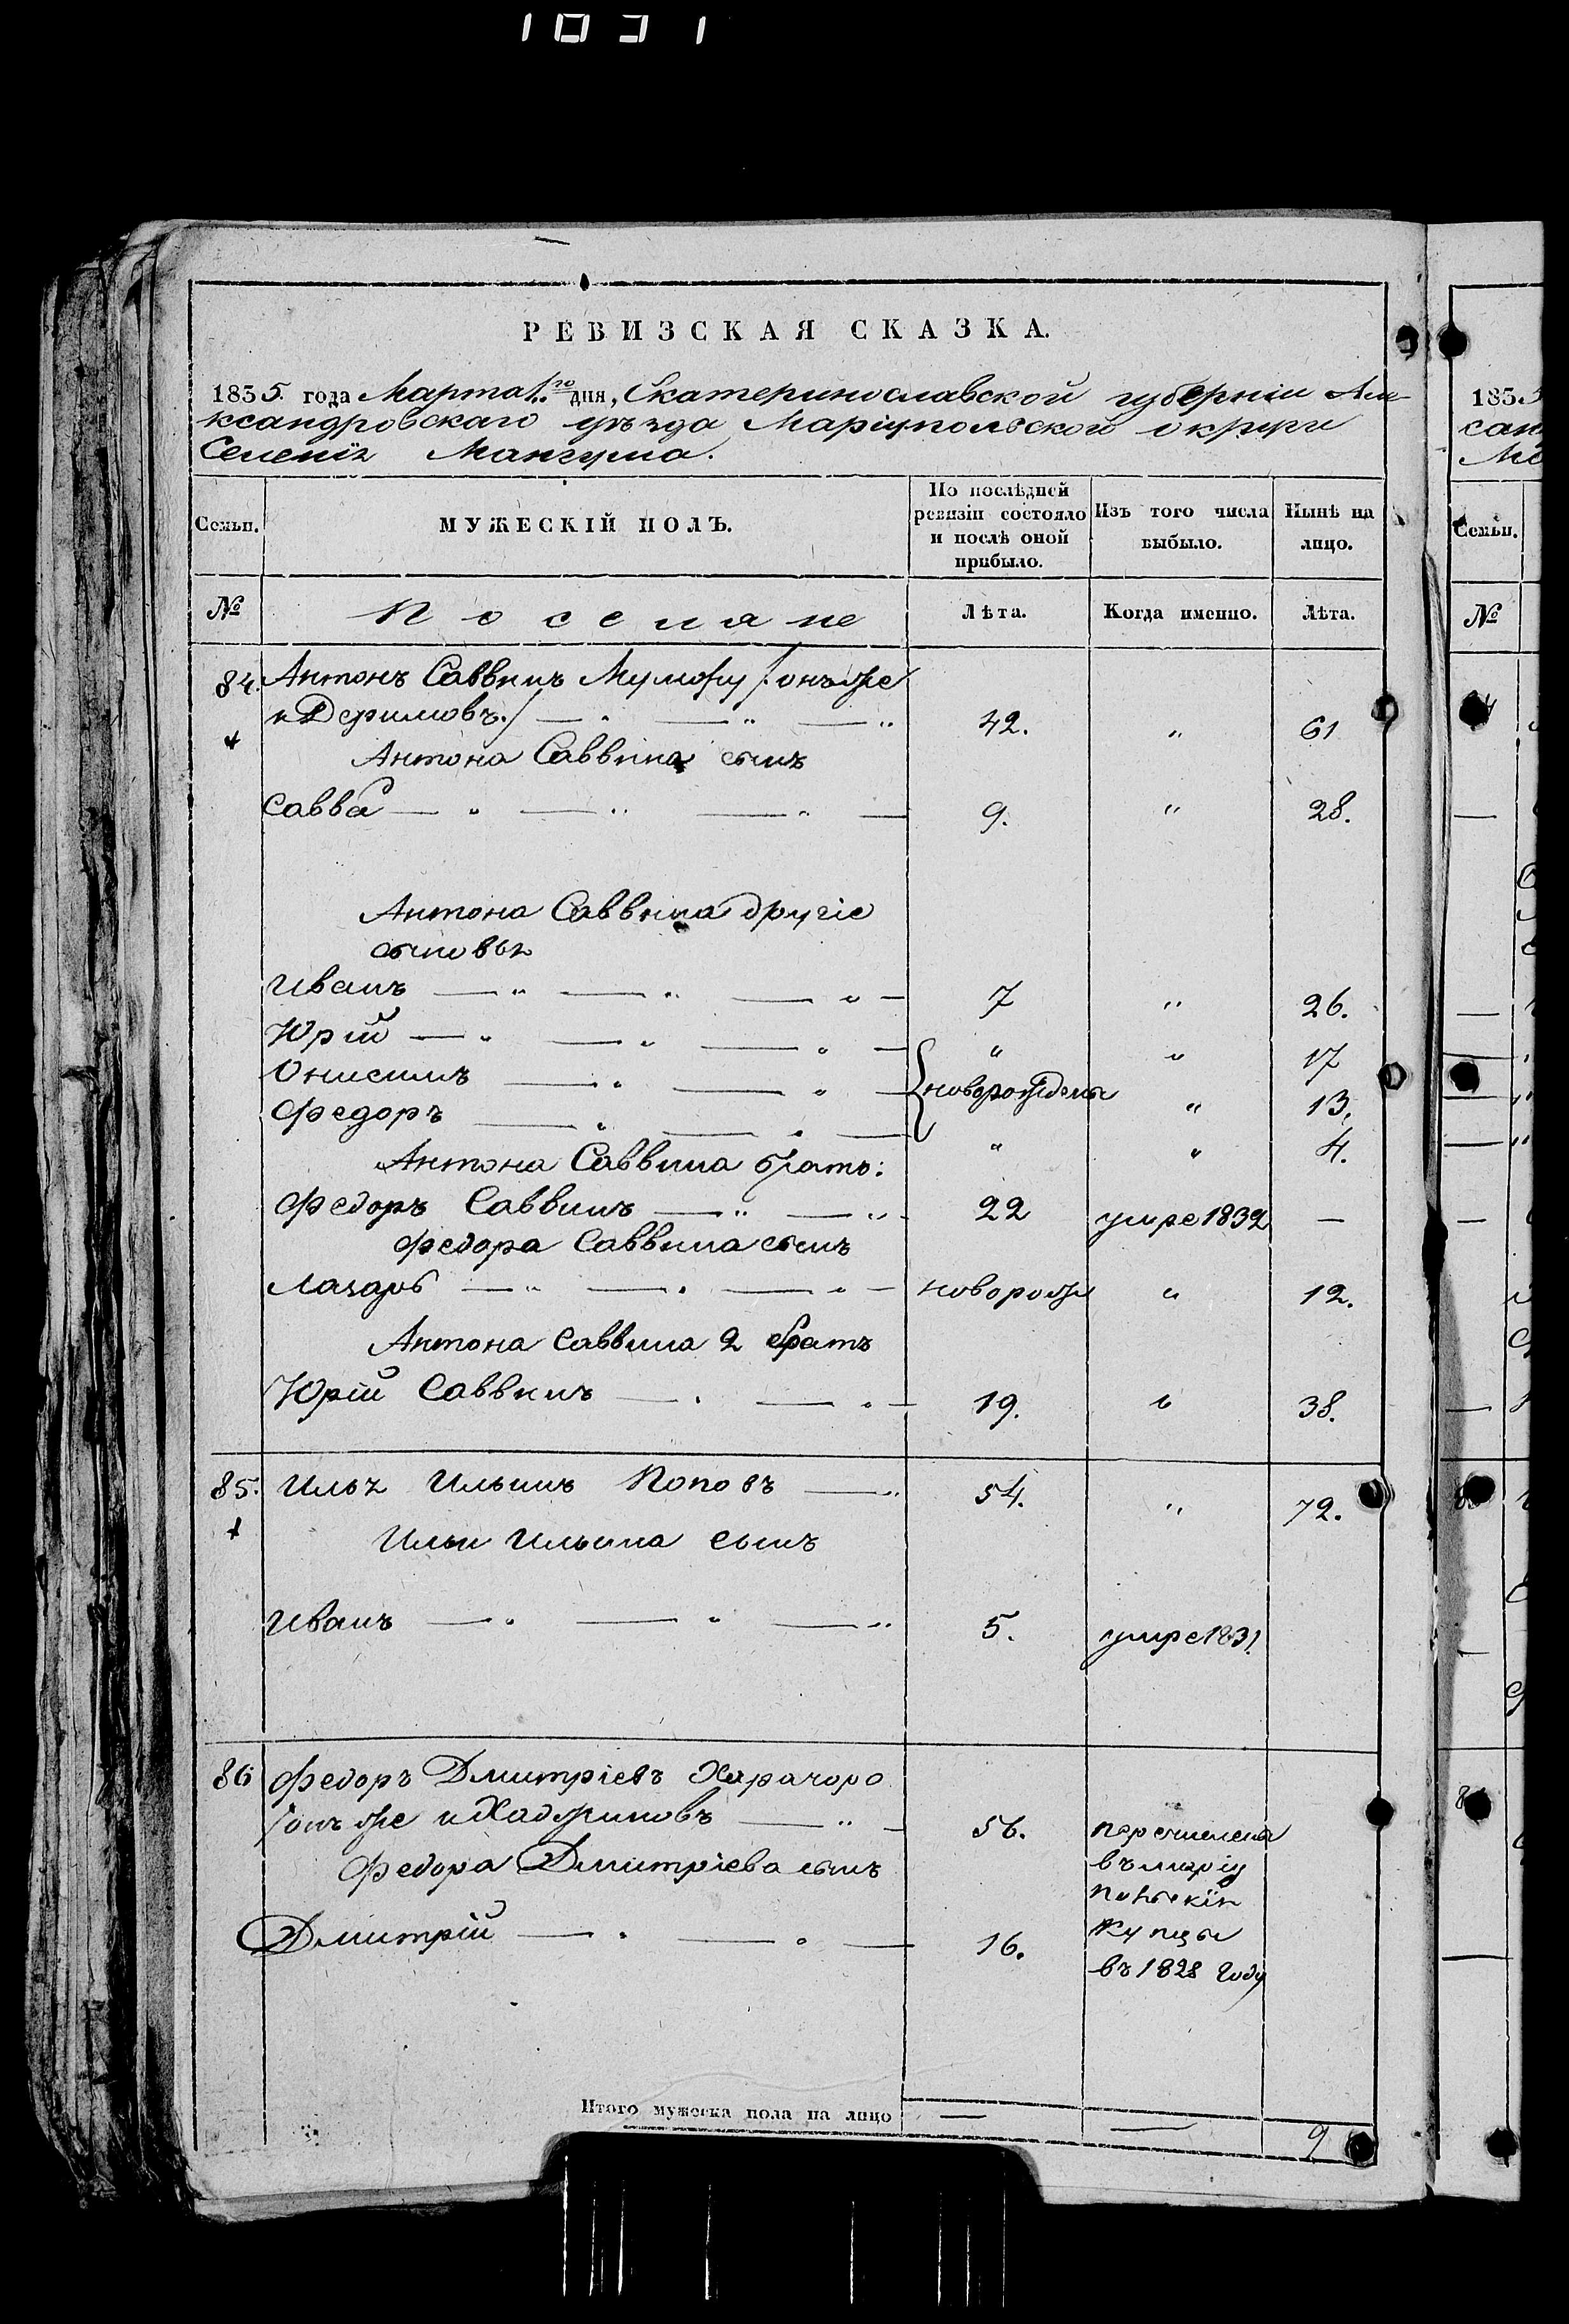 1031
РЕВИЗСКАЯ СКАЗКА.
1835. года Марта 1.го дня, Екатеринославской губерніи Але-
ксандровскаго уѣзда Маріупольской округи
Селенія Мангуша.
Семьи. МУЖЕСКІЙ ПОЛЪ. По послѣдней ревизіи состояло и послѣ оной прибыло. Изъ того числа выбыло. Нынѣ на лицо.
№ Поселяне Лѣта. Когда именно. Лѣта.
84. Антонъ Саввинъ /: онъ же
и 42. „ 61
Антона Саввина сынъ
Савва 9. „ 28.
Антона Саввина другіе
сыновья
Иванъ 7 „ 26.
Юрій „ „ 17
Онисимъ новорождены „ 13.
Федоръ „ „ 4.
Антона Саввина братъ:
Федоръ Саввинъ 22 умре 1832 —
Федора Саввина сынъ
Лазарь новорож „ 12.
Антона Саввина 2 братъ
Юрій Саввинъ 19. „ 38.
85. Илья Ильинъ Поповъ 54. „ 72.
Ильи Ильина сынъ
Иванъ 5. умре 1831.
86 Федоръ Дмитріевъ Харачоро
/онъ же и Хаджиновъ 56. перечислены
Федора Дмитріева сынъ въ маріу
польскіи
Дмитрій 16. купцы
въ 1828 году
Итого мужеска пола на лицо — — 9
183
№